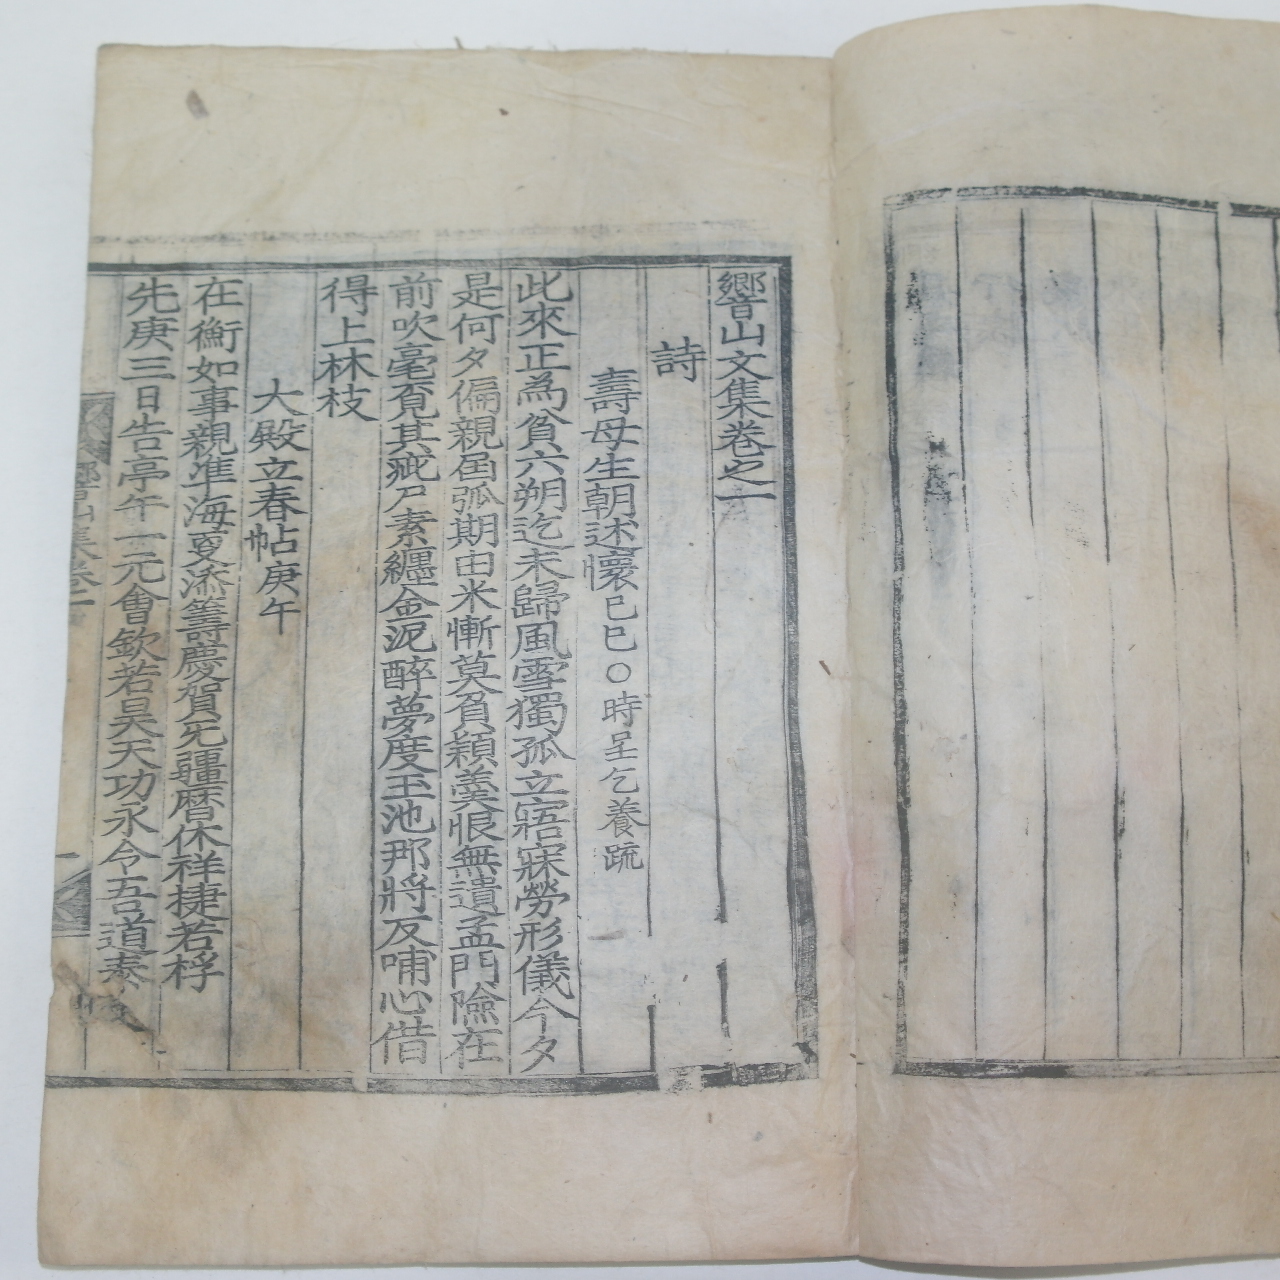 響山文集卷之一
詩
壽母生朝述懷 己巳○時呈乞養疏
此來正爲貧六朔迄未歸風雪獨孤立寤寐勞形儀今夕
是何夕偏親届弧期由米慚莫負穎羹恨無遺孟門險在
前吹毫覔其疵尸素纏金泥醉夢度玉池那將反哺心借
得上林枝
大殿立春帖 庚午
在衡如事親準海更添籌慶賀旡疆曆休祥捷若桴
先庚三日告亭午一元會欽若昊天功永令吾道泰
響山集卷一